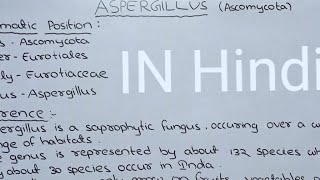 ASPERGILLUS (Ascomycota)
ematic Position :
s - Ascomycota
er - Eurotiales
ly - Eurotiaceae
us - Aspergillus
IN Hindi
rence :-
ergillus is a saprophytic fungus, occuring over a w
nge of habitats.
e genus is represented by about 132 species wh
y about 30 species occur in India.
on fruits, vegetables